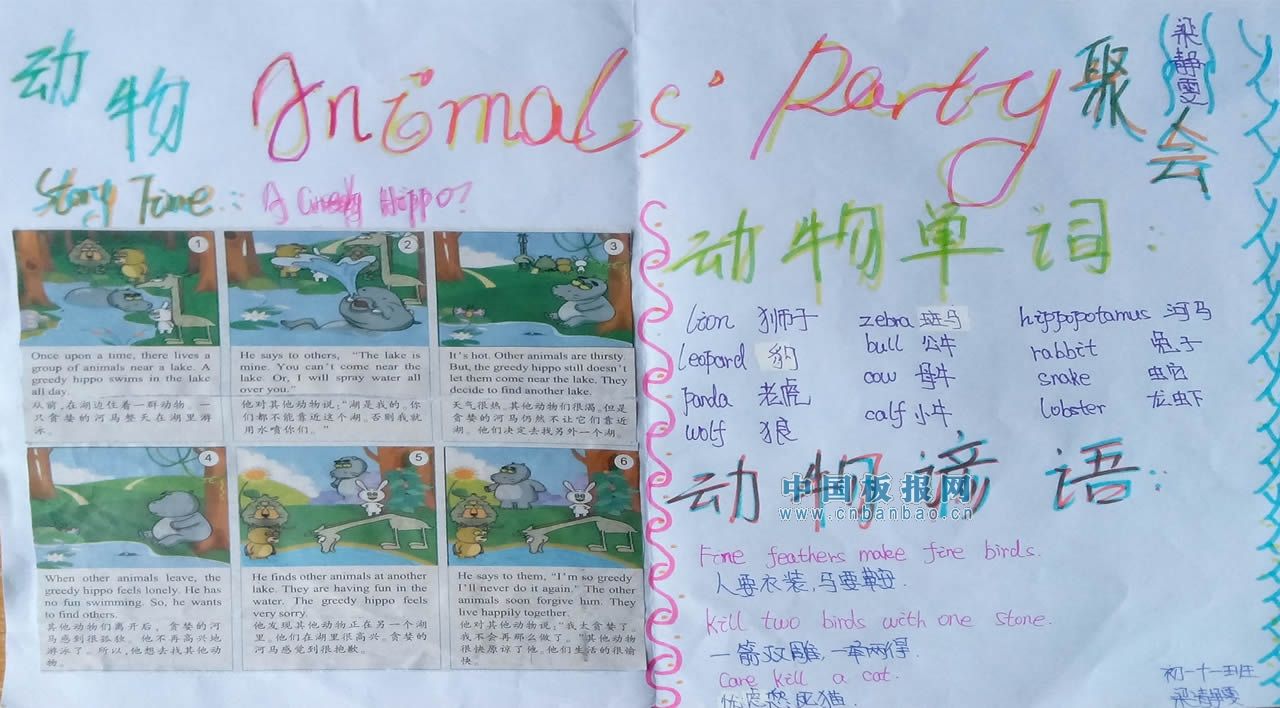 动物 Animals' Party 聚会
梁静雯
Story Time: A Greedy Hippo?
1
Once upon a time, there lives a
group of animals near a lake. A
greedy hippo swims in the lake
all day.
从前,在湖边住着一群动物。一
只贪婪的河马整天在湖里游
泳。
2
He says to others, "The lake is
mine. You can't come near the
lake. Or, I will spray water all
over you."
他对其他动物说:"湖是我的,你
们都不能靠近这个湖。否则我就
用水喷你们。"
3
It's hot. Other animals are thirsty.
But, the greedy hippo still doesn't
let them come near the lake. They
decide to find another lake.
天气很热。其他动物们很渴。但是
贪婪的河马仍然不让它们靠近
湖。他们决定去找另外一个湖。
4
When other animals leave, the
greedy hippo feels lonely. He has
no fun swimming. So, he wants
to find others.
其他动物们离开后,贪婪的河
马感到很孤独。他不再高兴地
游泳了。所以,他想去找其他动
物。
5
He finds other animals at another
lake. They are having fun in the
water. The greedy hippo feels
very sorry.
他发现其他动物正在另一个湖
里。他们在湖里很高兴。贪婪的
河马感觉到很抱歉。
6
He says to them, "I'm so greedy.
I'll never do it again." The other
animals soon forgive him. They
live happily together.
他对其他动物说:"我太贪婪了。
我不会再那么做了。"其他动物
很快原谅了他。他们生活的很愉
快。
动物单词:
lion 狮子 zebra 斑马 hippopotamus 河马
leopard 豹 bull 公牛 rabbit 兔子
panda 老虎 cow 母牛 snake 蛇
wolf 狼 calf 小牛 lobster 龙虾
动物谚语:
中国板报网
www.cnbanbao.cn
Fine feathers make fine birds.
人要衣装,马要鞍.
kill two birds with one stone.
一箭双雕,一举两得.
Care kill a cat.
忧虑愁死猫.
初一十一班
梁静雯